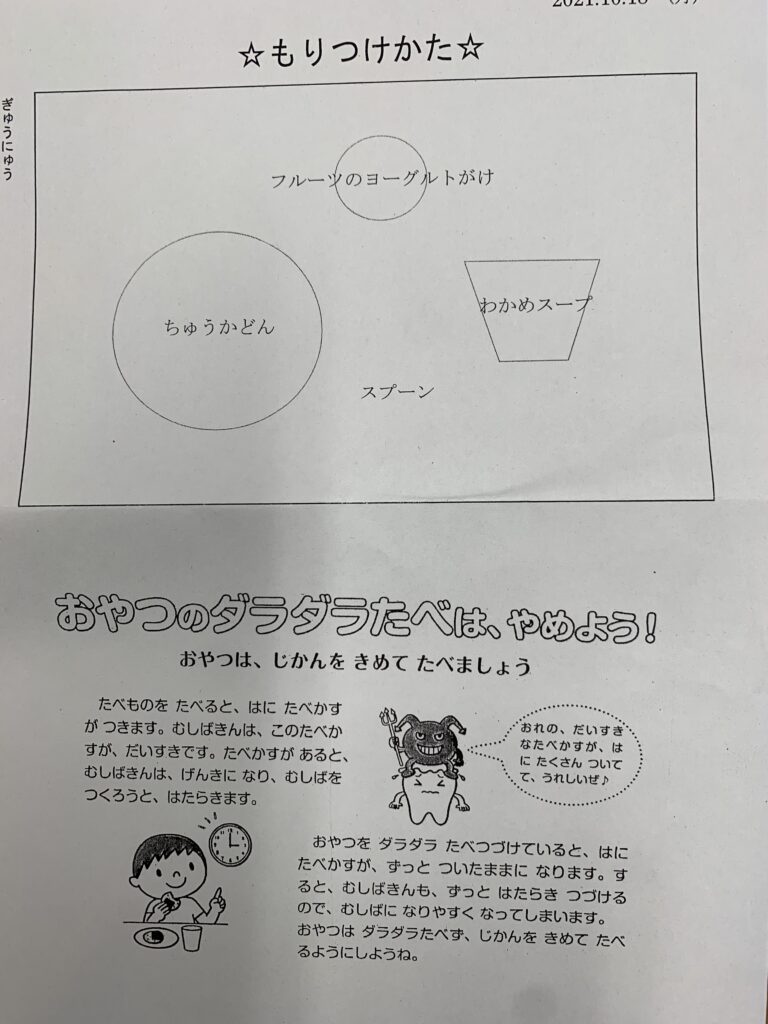 ☆もりつけかた☆
ぎゅうにゅう
フルーツのヨーグルトがけ
ちゅうかどん
わかめスープ
スプーン
おやつのダラダラたべは、やめよう！
おやつは、じかんを きめて たべましょう
たべものを たべると、はに たべかす
が つきます。むしばきんは、このたべか
すが、だいすきです。たべかすが あると、
むしばきんは、げんきに なり、むしばを
つくろうと、はたらきます。
おれの、だいすき
なたべかすが、は
に たくさん ついて
て、うれしいぜ♪
おやつを ダラダラ たべつづけていると、はに
たべかすが、ずっと ついたままに なります。す
ると、むしばきんも、ずっと はたらき つづける
ので、むしばに なりやすく なってしまいます。
おやつは ダラダラたべず、じかんを きめて たべ
るようにしようね。